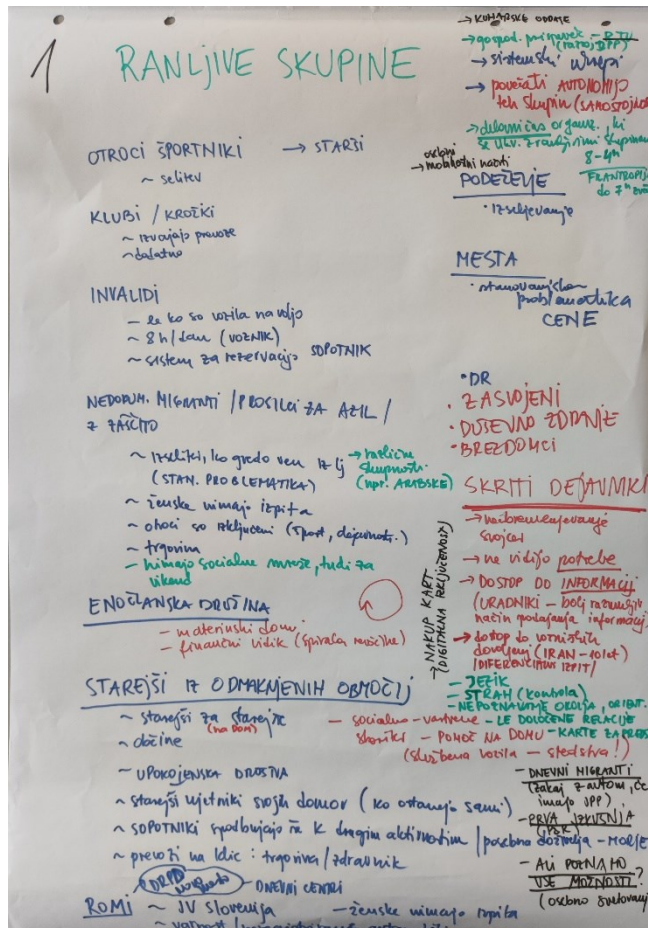 1
RANLJIVE SKUPINE
OTROCI ŠPORTNIKI → STARŠI
~ selitev
KLUBI / KROŽKI
~ izvajajo prevoze
~ dodatno
INVALIDI
– le ko so vozila na voljo
~ 8h/dan (VOZNIK)
~ sistem za rezervacijo SOPOTNIK
NEDOKUM. MIGRANTI / PROSILCI ZA AZIL /
Z ZAŠČITO
~ izseliki, ko gredo ven iz lj
(STAN. PROBLEMATIKA)
→ različne
skupnosti
(npr. ARABSKE)
~ ženske nimajo izpita
~ otroci so izključeni (šport, dejavnosti.)
~ trgovina
– nimajo socialne mreže, tudi za
vikend
ENOČLANSKA DRUŽINA
– materinski domi
– finančni vidik (spirala revščine)
STAREJŠI IZ ODMAKNJENIH OBMOČIJ
~ starejši za starejše
(na DOM)
~ občine
– socialno-varstvene
– POMOČ NA DOMU
(službena vozila – sredstva!)
– UPOKOJENSKA DRUŠTVA
~ starejši ujetniki svojih domov (ko ostanejo sami)
~ SOPOTNIKI spodbujajo k drugim aktivnostim / posebna doživetja – MORJE
~ prevozi na klic: trgovina / zdravnik
– DNEVNI CENTRI
ROMI ~ JV Slovenija
– ženske nimajo izpita
→ gospod.
→ sistemski ukrepi
→ povečati AVTONOMIJO
teh skupin (SAMOSTOJNOST
se ukv. z ranljivimi skupinami
osebni
→ mobilnostni načrti
PODEŽELJE
• izseljevanje
MESTA
• stanovanjska
problematika
CENE
• DR
• ZASVOJENI
• DUŠEVNO ZDRAVJE
• BREZDOMCI
SKRITI DEJAVNIKI
→ ne vidijo potrebe
→ DOSTOP DO INFORMACIJ
(URADNIKI – bolj razumljiv
način podajanja informacij
→ dostop do vozniških
dovoljenj (IRAN – 10 let)
/DIFERENCIALNI IZPIT/
– JEZIK
– STRAH (kontrola)
– NEPOZNAVANJE OKOLJA, ORIENT.
– LE DOLOČENE RELACIJE
NAKUP KART
(DIGITALNA IZKLJUČENOST)
– DNEVNI MIGRANTI
(zakaj z avtom, če
imajo JPP)
– PRVA IZKUŠNJA
– ALI POZNAMO
VSE MOŽNOSTI?
(osebno svetovanje